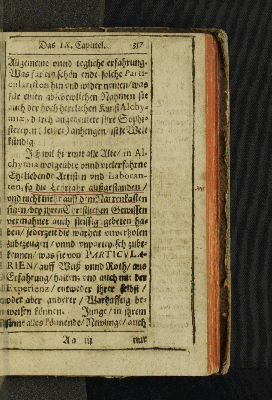 Das IX. Capittel. 317
Allgemeine vnnd tegliche erfahrung.
Was für ein schön ende solche Parti-
cularisten hin vnd wider nemen / was
für einen abschewlichen Nahmen sie
auch der hoch herrlichen Kunst Alchy-
miæ, durch angeneutete ihre Sophi-
sterey an ( leider ) anhengen / ist je Welt
kündig.
Ich wil hiemit alle Alte / in Al-
chymia wolgeübte vnnd vielerfahrne
Ehrliebende Artisten vnd Laboran-
ten, so die Lehrjahr außgestanden /
vnd nicht mehr auff dem Narrenkasten
ligen / bey ihren Christlichen Gewissen
vermahnet auch fleissig gebeten ha-
ben / jederzeit die warheit vnverholen
zubezeugen / vnnd vnpartey sch zube-
kennen / was sie von PARTICVLA-
RIEN / auff Weiß vnnd Roth / aus
Erfahrung / halten vnd auch mit der
Experienz / entweder ihrer selbst /
oder aber anderer / Warhafftig be-
weisen können. Junge / in ihrem
sinne alles könnende / Näwinge / auch
Aa iij nur